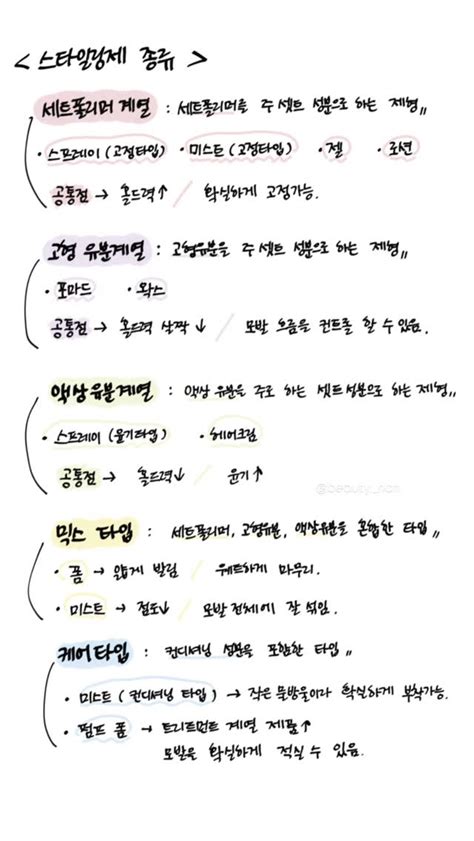 < 스타일링제 종류 >
세트폴리머 계열 : 세트폴리머를 주 셋트 성분으로 하는 제형 〃
· 스프레이 (고정타입) · 미스트 (고정타입) · 젤 · 로션
공통점 → 홀드력↑ / 확실하게 고정가능.
고형 유분계열 : 고형유분을 주 셋트 성분으로 하는 제형 〃
· 포마드 · 왁스
공통점 → 홀드력 살짝 ↓ / 모발 흐름을 컨트롤 할 수 있음.
액상유분계열 : 액상 유분을 주로 하는 셋트성분으로 하는 제형 〃
· 스프레이 (윤기타입) · 헤어크림
공통점 → 홀드력↓ / 윤기↑
@beauty_nan
믹스 타입 : 세트폴리머, 고형유분, 액상유분을 혼합한 타입 〃
· 폼 → 얇게 발림 / 웨트하게 마무리.
· 미스트 → 점도↓ / 모발 전체에 잘 섞임.
케어타입 : 컨디셔닝 성분을 포함한 타입 〃
· 미스트 ( 컨디셔닝 타입 ) → 작은 물방울이라 확실하게 부착가능.
· 펌프 폼 → 트리트먼트 계열 제품↑
모발을 확실하게 적실 수 있음.